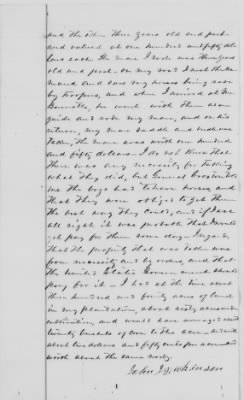 and the other three years old and past
and valued at one hundred and fifty dol
lars each The man I rode was three years
old and past. on my road I met the com
mand and saw my horses being rode
by troopers, and when I arrived at Mr
he went with them as a
guide and rode my mare, and on his
return, my mare saddle and bridle was
taken, the mare was worth one hundred
and fifty dollars I do not know that
there was any necessity for taking
what they did, but General
me the boys had to have horses and
that they were obliged to get them
the best way they could, and if I was
all right it was probable that I would
get pay for them some day. I regard
that the property that was taken was
from necessity and by orders, and that
the United States Government should
pay for it — I had at the time about
three hundred and twenty acres of land
in my plantation, about sixty acres in
cultivation, and would have averaged
twenty bushels of corn to the acre
about two dollars and fifty cents per
worth about the same
John J Jackinson